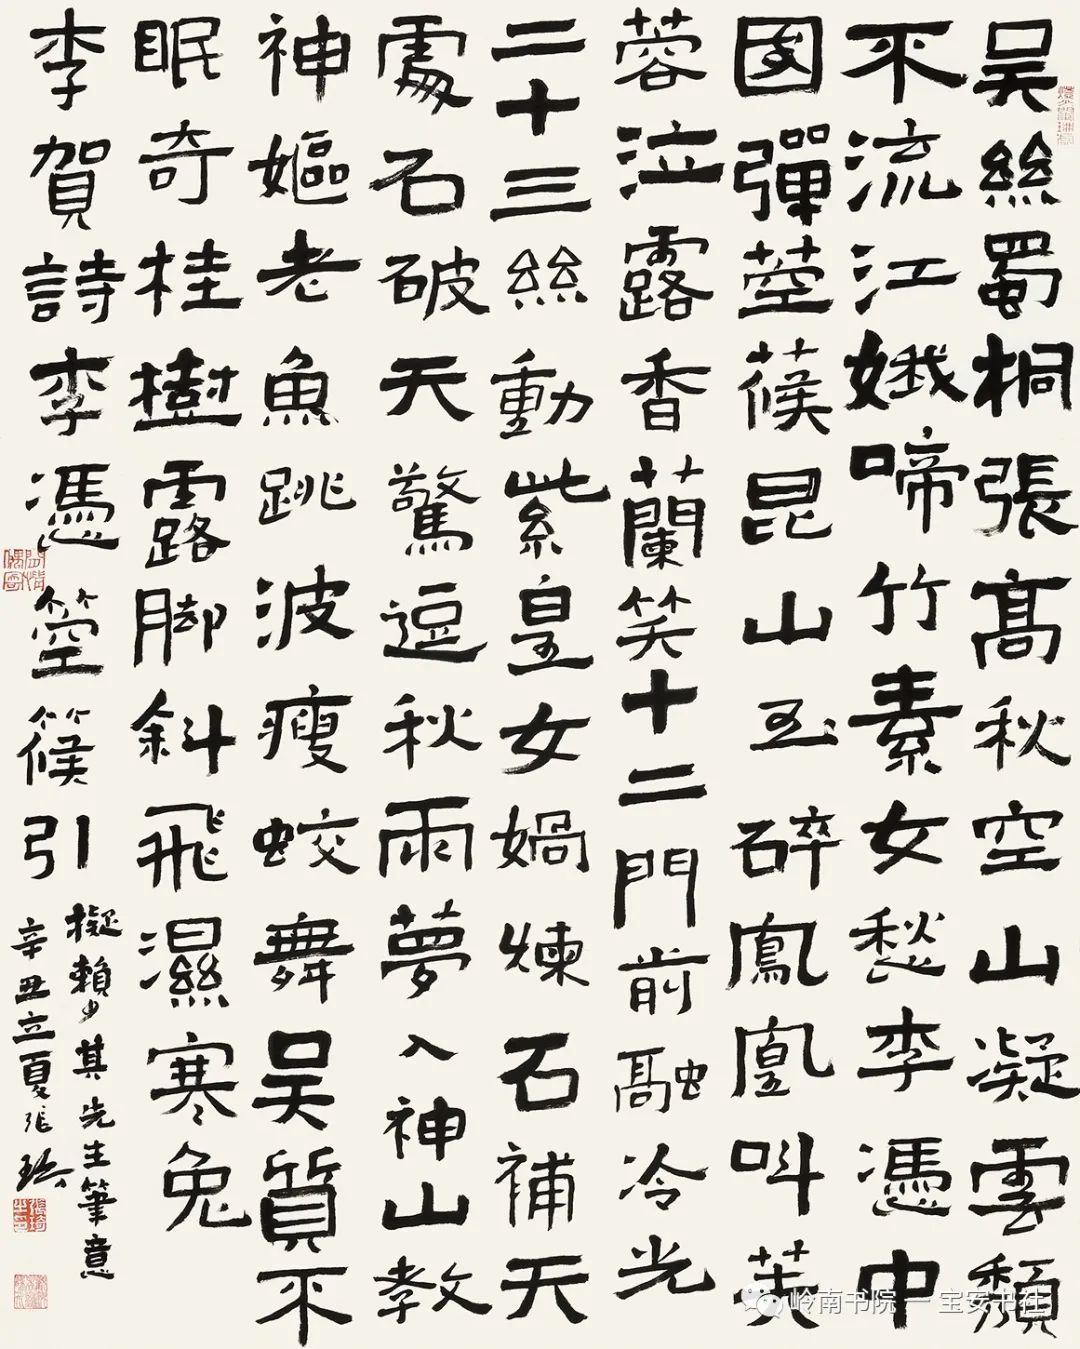 吴絲蜀桐張髙秋空山凝雲頹
不流江娥啼竹素女愁李憑中
國彈箜篌昆山玉碎鳳凰叫芙
蓉泣露香蘭笑十二門前融冷光
二十三絲動紫皇女媧煉石補天
處石破天驚逗秋雨夢入神山教
神嫗老魚跳波瘦蛟舞吴質不
眠奇桂樹露脚斜飛濕寒兔
李賀詩李憑箜篌引
擬賴少其先生筆意
辛丑立夏張琦
岭南书院 — 宝安书社